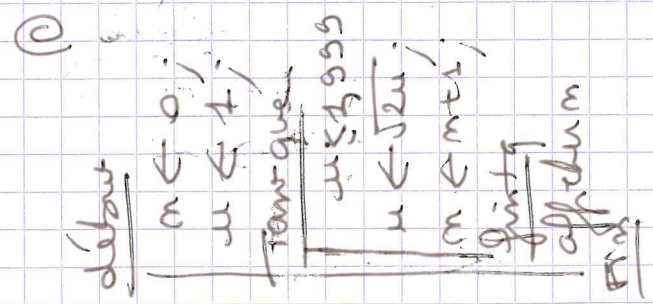 début
n ← 0 ;
u ← 1 ;
Tant que
u ≤ 1,999
u ← √2u ;
n ← n+1 ;
fintq
afficher n
Fin